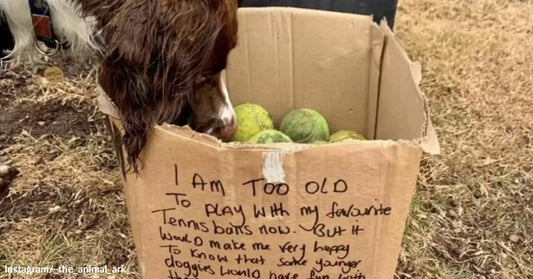 I AM TOO OLD
TO PLAY WITH my favourite
Tennis balls now. BUT it
Would make me very happy
To know that some younger
doggies would have fun with
Instagram/_the_animal_ark